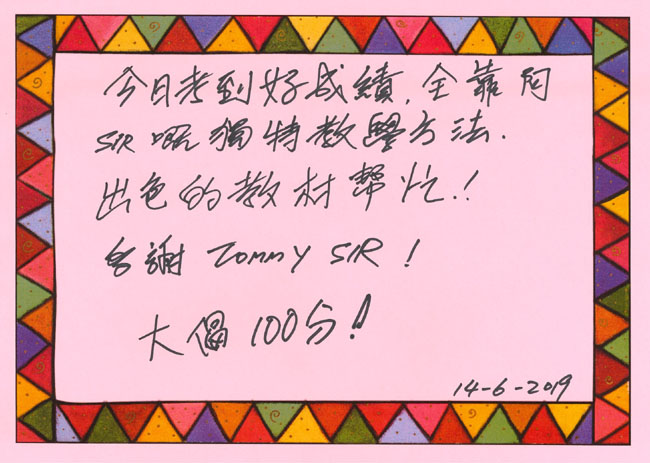 今日考到好成績，全靠阿
SIR 嘅獨特教學方法．
出色的教材幫忙！！
多謝 TOMMY SIR！
大偈 100分！
14-6-2019